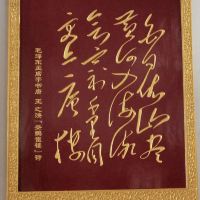 白日依山尽
黄河入海流
欲穷千里目
更上一层楼
毛泽东主席手书唐 王之涣『登鹳雀楼』诗